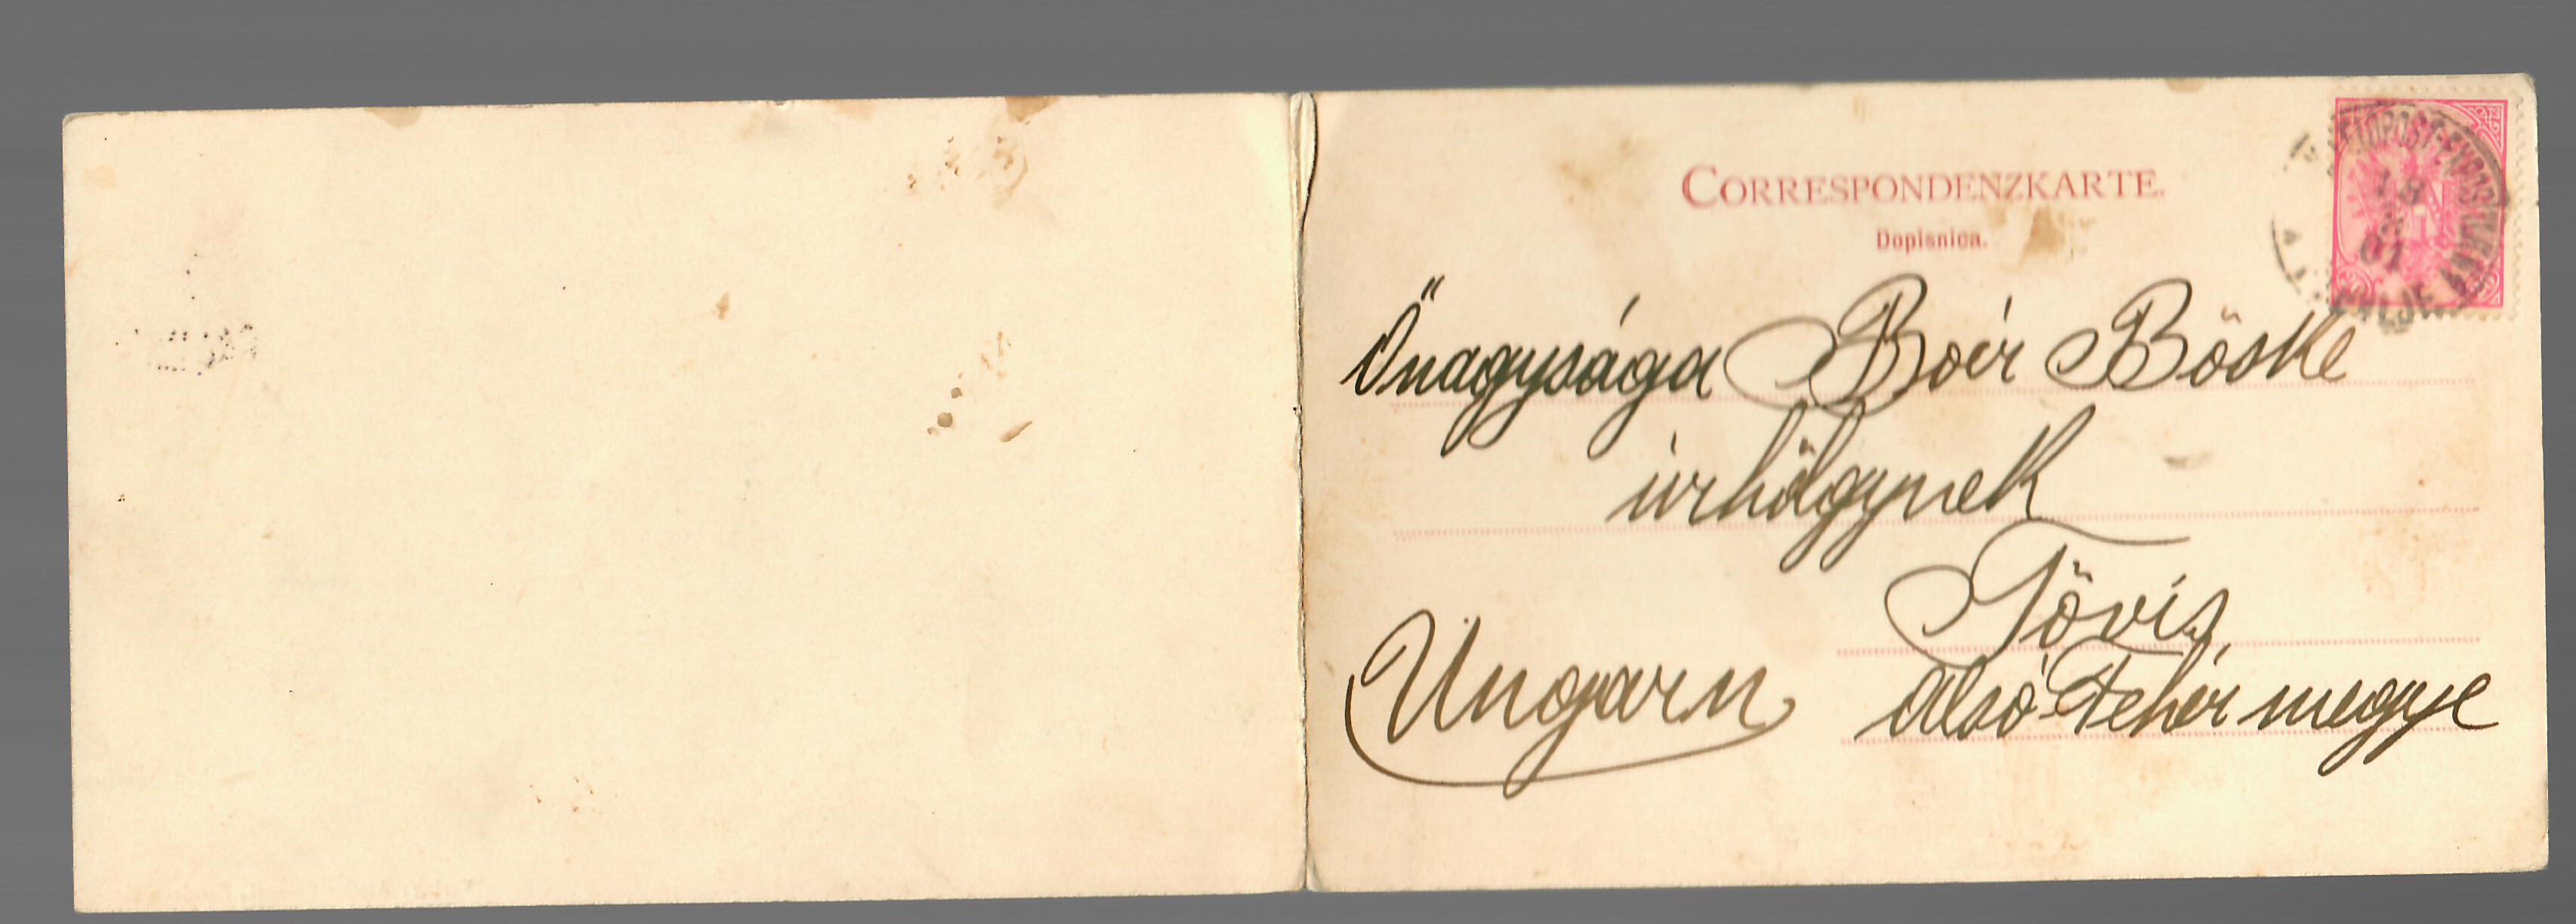 CORRESPONDENZKARTE.
Dopisnica.
FELDPOST-EXPOSITUR
18
01
PLJE
Őnagysága Boér Böske
úrhölgynek
Tövis,
Ungarn
alsó-Fehér megye